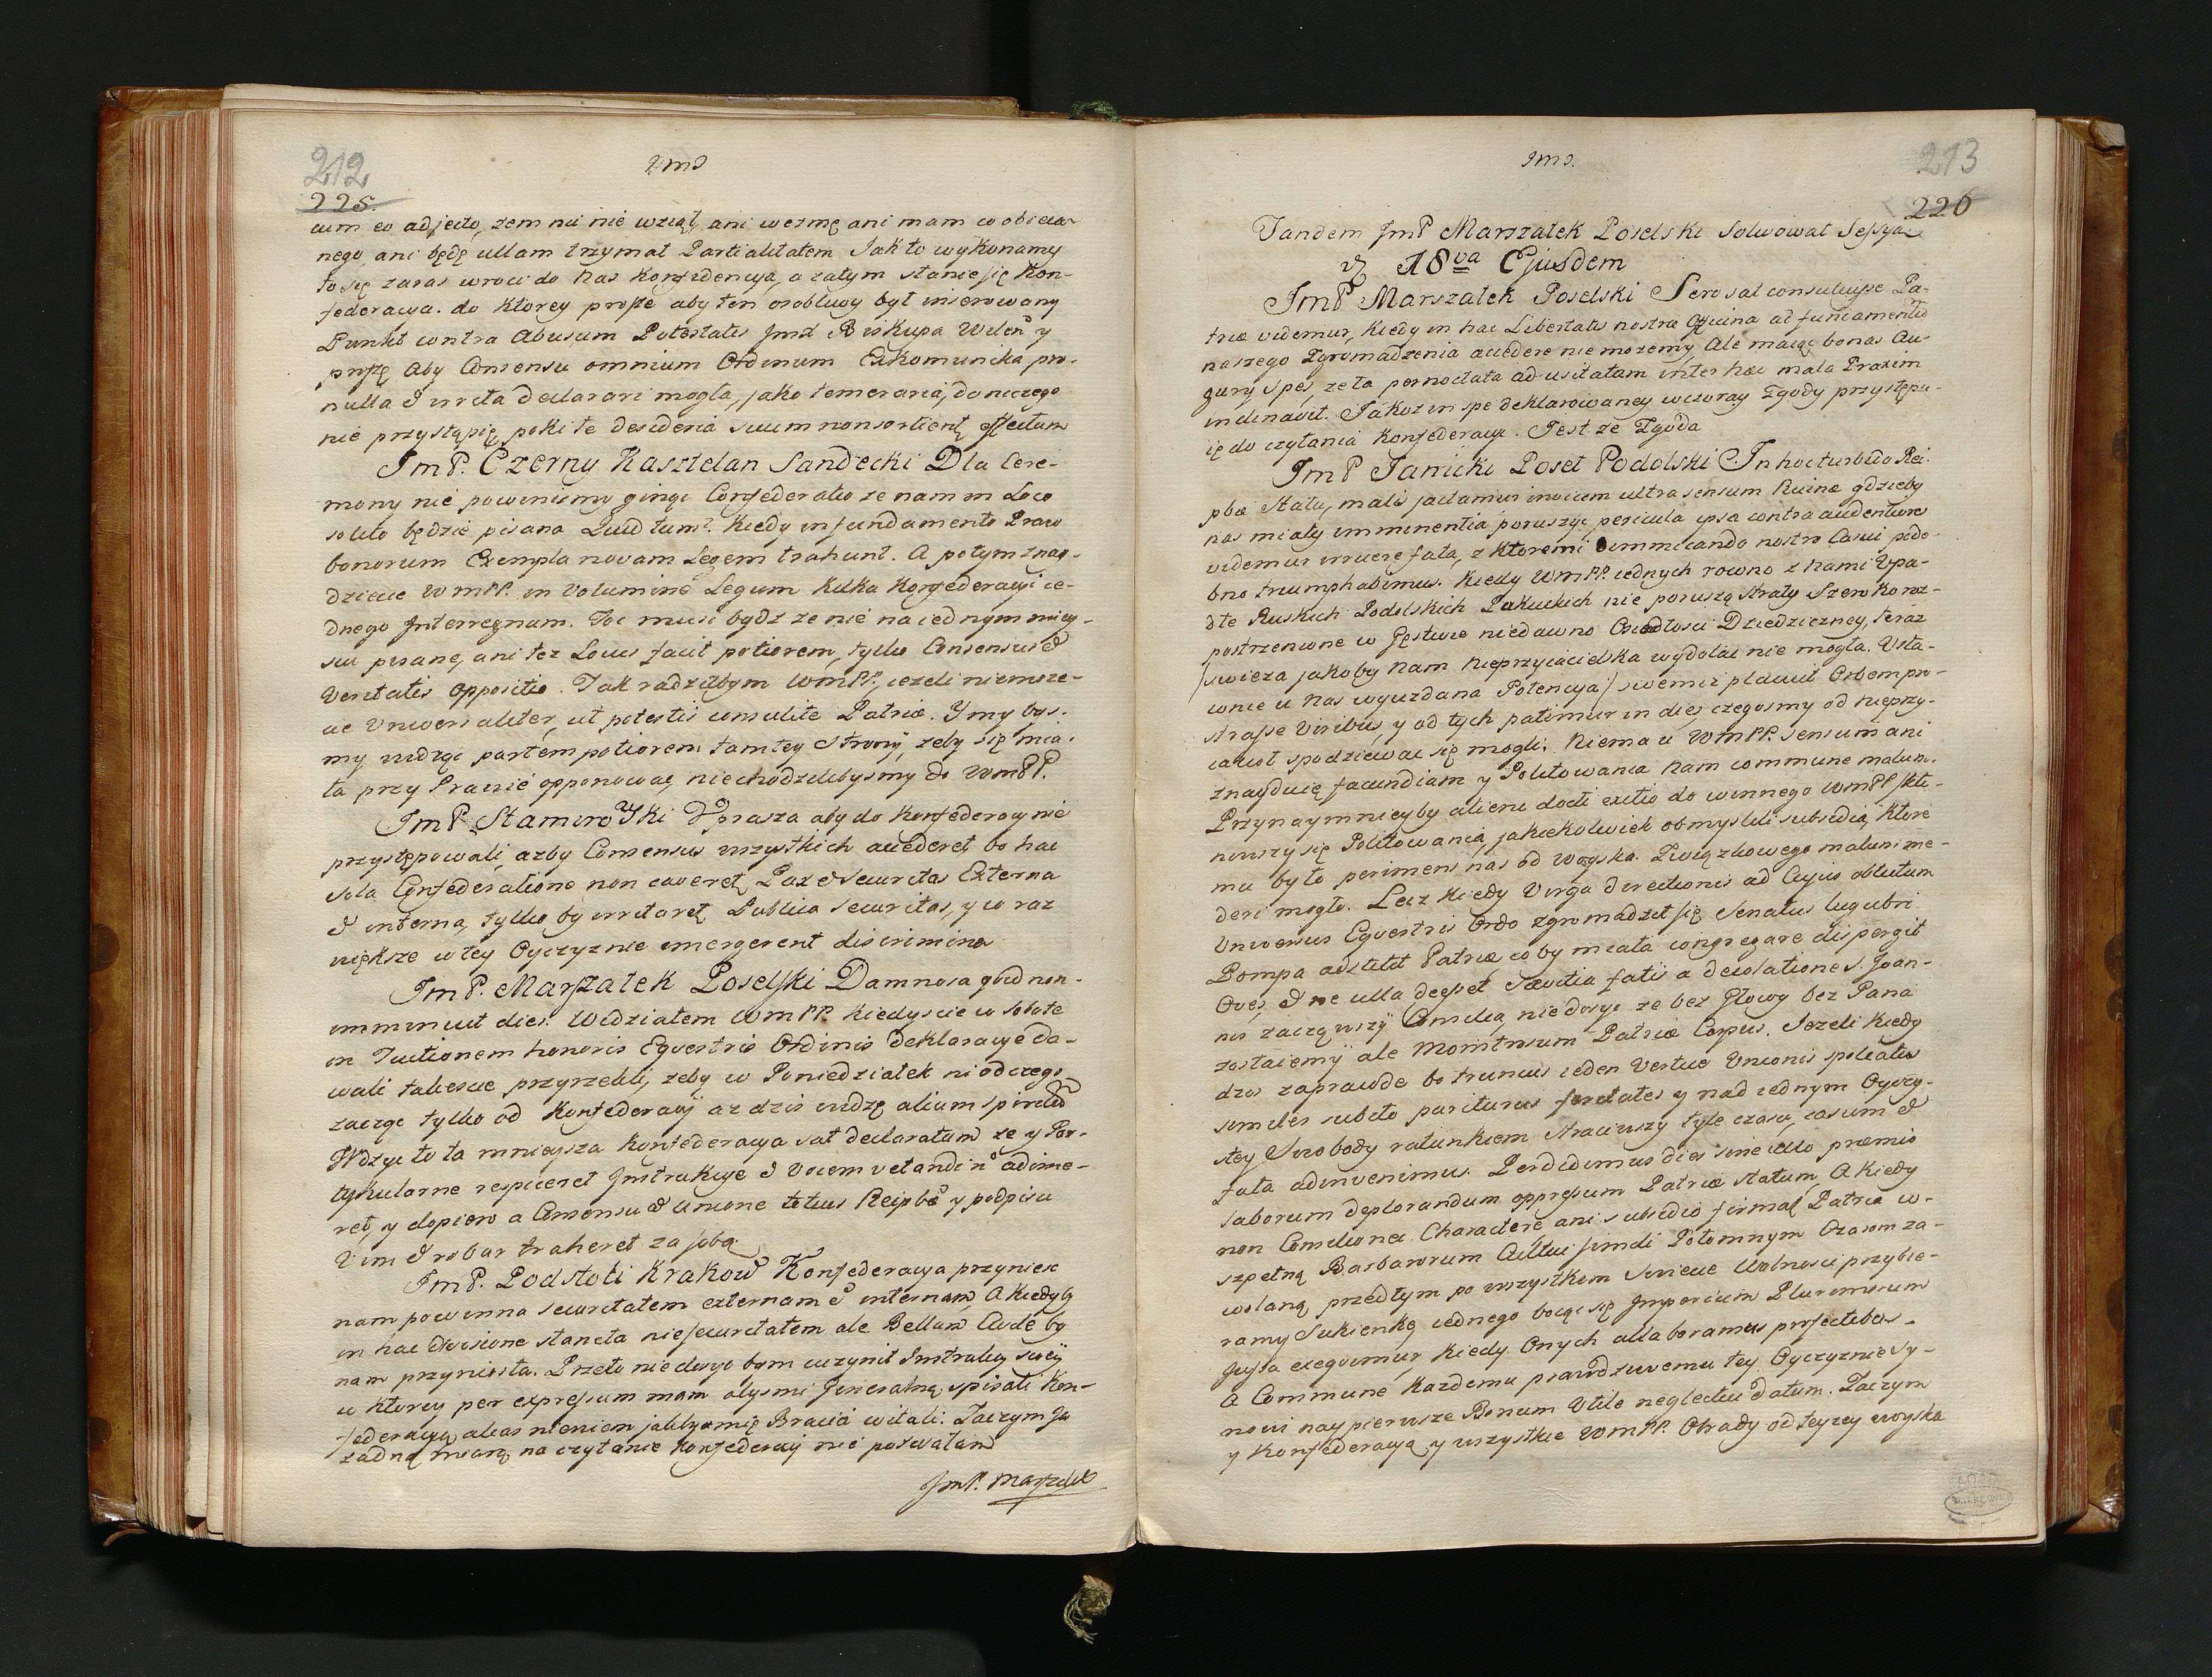 212
225.
cum eo adjecto, zem nic nie wziął, ani wezmę ani mam co obieca-
nego, ani będę ullam trzymał Partialitatem Jak to wykonamy
to się zaraz wroci do nas konfidencya, a zatym stanie się Kon-
federacya. do ktorey proszę aby ten osobliwy był inserowany
Punkt contra Abusum Potestatis Jmx Biskupa Wilen: y
proszę Aby Consensu omnium Ordinum Exkomunika pro-
nulla & irrita declarari mogła, jako temeraria, do niczego
nie przystąpię, poki te desideria suum non sortient effectum
JmP. Czerny Kasztelan Sandecki Dla Cere-
mony nie powinismy ginąć Confederatio ze nam in Loco
solito będzie pisana Quid tum? kiedy in fundamento Praw
bonorum Exempla novam Legem trahunt. A potym znay-
dziecie WmPP. in Volumine Legum kilka konfederacyi ie-
dnego Interregnum. Toc musi bydz ze nie na iednym miey-
scu pisane, ani tez Locus facit potiorem, tylko Consensus &
Veritatis oppositio. Jak radziłbym WmPP, iezeli niemoze-
cie Universaliter, ut potestis consulite Patriæ. Y my bys-
my widząc partem potiorem tamtey strony, zeby się mia-
ła przy Prawie opponować, nie chodzilibysmy do WmPP.
JmP. Stamirowski Uprasza aby do konfederacyi nie
przystępowali, azby Consensus wszystkich accederet, bo hac
sola Confederatione non caveret Pax & securitas Externa
& interna, tylko by irritaret Publica securitas, y co raz
większe w tey Oyczyznie emergerent discrimina
JmP. Marszałek Poselski Damnosa quid non
imminuit dies. Widziałem WmPP kiedyscie w sobotę
in Tuitionem honoris Equestris Ordinis deklaracye da-
wali takiescie przyrzekli, zeby w Poniedziałek ni od czego
zacząc tylko od konfederacyi az dzis widzę alium spiritum
Wdzyc to ta mnieysza konfederacya sat declaratum ze y Par-
tykularne respiceret Jnstrukcye & Vocem vetandi n: adime-
ret, y dopiero a Consensu & Unione totius Reipbæ y podpisu
Vim & robur traheret za sobą
JmP. Podstoli Krakow: Konfederacya przyniesc
nam powinna securitatem externam & internam, A kiedyby
in hac divisione stanęła nie securitatem ale Bellum Civile by
nam przyniosła. Przeto nie dosyc bym uczynił Instrukcyi swey
w ktorey per expressum mam abysmi generalną spisali Kon-
federacyą, alias nie wiem jakby mię Bracia witali. Zaczym Ja
zadną miarą na czytanie konfederacyi nie pozwalam
JmP. Marszałek
213
226
Tandem JmP Marszałek Poselski solwował Sessyą
18va Ejusdem
JmP Marszałek Poselski Sero sat consuluisse Pa-
triæ videmur, kiedy in hac Libertatis nostræ Officina ad fundamentu
naszego Zgromadzenia accedere nie mozemy Ale maiąc bonas Au-
gurij spes, ze ta pernoctata ad usitatam inter hæc mala Praxim
inclinavit. Jakoz in spe deklarowaney wczoray Zgody przystępu-
ię do czytania konfederacyi. Jest ze Zgoda
JmP Janicki Poseł Podolski In hoc turbido Rei-
pbæ Statu, malis jactamur invicem ultra sensum Ruinæ gdzieby
nas miały imminentia poruszyć pericula ipsa contra audentiores
videmur irruere fata, z ktoremi dimmicando nostro Casui podo-
bno triumphabimus. Kiedy WmPP. iednych rowno z nami Upa-
dłe Ruskich Podolskich Pokuckich nie poruszą straty Szeroko roz-
postrzenione w Gęstwie niedawno Osiadłosci Dziedziczney, teraz
swieza jakoby nam nieprzyiacielska wydołac nie mogła. Usta-
wnie u nas wyuzdana Potencya/ siremis placuit Orbem pro-
strasse Viribus, y od tych patimur in dies czegosmy od nieprzy-
iacioł spodziewac się mogli. Niema u WmPP. sensum ani
znayduię facundiam y Politowania nam commune malum.
Przynaymniey by alieni docti exitio do winnego WmPP skło-
niwszy się Politowania, jakiekolwiek obmyslili subsidia, ktore
mu było perimens nas od woyska Związkowego malum me-
deri mogło. Lecz kiedy Virga directionis ad Cujus obtutum
Universus Equestris Ordo zgromadził się Senatus lugubri
Pompa adstitit Patriæ co by miała congregare dispergit
Oves, & ne ulla deesset Sævitia fatis a desolatione S. Joan-
nis zacząwszy Consilia, nie dosyc ze bez Głowy bez Pana
zostaiemy ale Monstrosum Patriæ Corpus. Jezeli kiedy
dzis zaprawde bo truncus ieden Vestuc Unionis spoliatus
similis subito pariturus y nad iednym Oyczy-
stey Swobody ratunkiem straciwszy tyle czasu, casum &
fata adinvenimus. Perdidimus dies sine ullo præmio
laborum deplorandum oppressum Patriæ statum, A kiedy
non Consiliorum Charactere ani subsidio firmat Patria w-
szpetną Barbarorum Potomnym Czasom za-
wolaną przedtym po wszystkim Swiecie Wolnosci przybie-
ramy Sukienkę iednego bojąc się Imperium Plurimorum
jussa exequimur, kiedy Onych allaboramus profectibus.
A Commune kazdemu prawdziwemu tey Oyczyznie Sy-
nowi naypierwsze Bonum Utile neglectui datum. Zaczym
y konfederacyą y wszystkie WmPP. Obrady od teyzey woyska